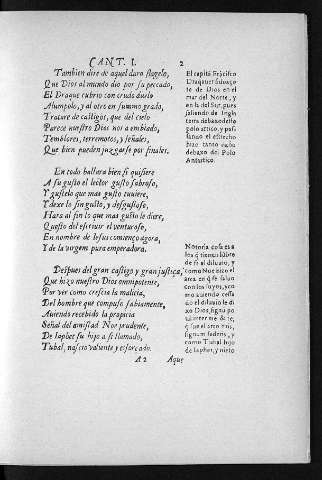 CANT. I. 2
Tambien dire de aquel duro flagelo,
Que Dios al mundo dio por su pecado,
El Draque cubrio con crudo duelo
Alumpolo, y al otro en summo grado,
Tratare de castigos, que del cielo
Parece nuestro Dios nos a embiado,
Temblores, terremotos, y señales,
Que bien pueden juzgarse por finales.
En todo hallara bien si quisiere
A su gusto el lector gusto sabroso,
Y gustelo que mas gusto tuuiere,
Y dexe lo sin gusto, y desgustoso,
Hara al fin lo que mas gusto le diere,
Questo del escriuir el venturoso,
En nombre de Iesus comienço agora,
Y de la virgen pura emperadora.
Despues del gran castigo y gran justiça,
Que hizo nuestro Dios omnipotente,
Por ver como crescia la malicia,
Del hombre que compuso sabiamente,
Auiendo recebido la propicia
Señal del amistad Noe prudente,
De Iaphet su hijo a si llamado,
Tubal, nascio valiente y esforçado.
El capitã Frãcisco
Draque fue açote
de Dios en el
mar del Norte, y
en la del Sur, pues
saliendo de Ingla
terra debaxo del
polo artico, y pas
sando el estrecho
hizo tanto caso
debaxo de Polo
Antartico.
Notoria cosa es a
los q̃ tienen libre
de fe al diluuio, y
como Noe hizo el
arca en q̃ se saluo
con los suyos, y co
mo auiendo cessa
do el diluuio le di
xo Dios, signũ po
nã inter me & te,
q̃ fue el arco iris,
signum fœderis, y
como Tubal hijo
de Iaphet, y nieto
A 2 Aque